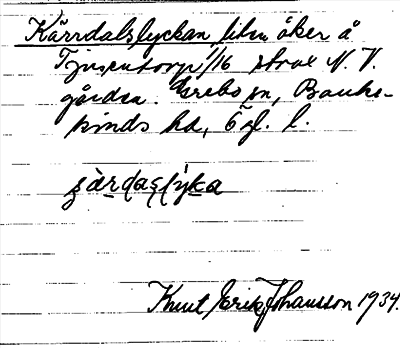 Kärrdalslyckan, liten åker å
Tjusentorp 1/16 strax N. V.
gården. Grebo sn, Bankekinds hd, Ög. l.
särdaslyka
Knut Erik Johansson 1934.